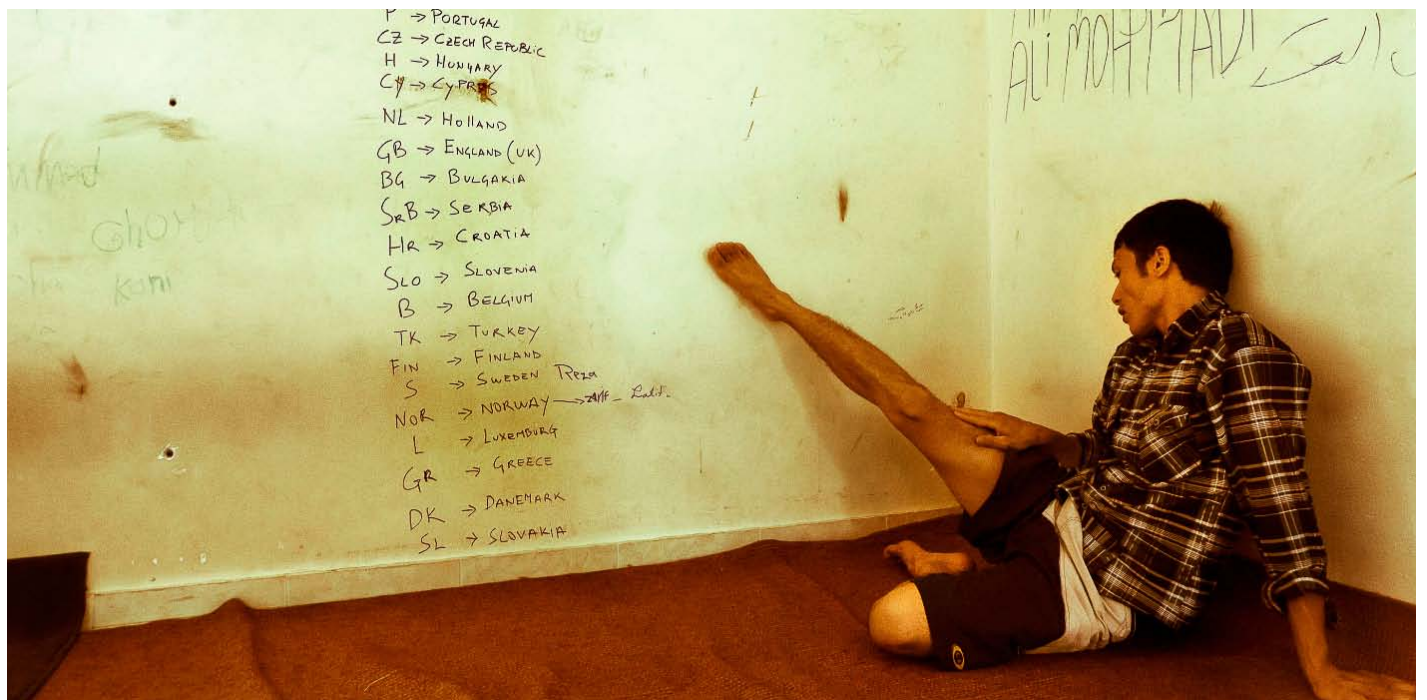 P → PORTUGAL
CZ → CZECH REPUBLIC
H → HUNGARY
CY → CYPRUS
NL → HOLLAND
GB → ENGLAND (UK)
BG → BULGARIA
SRB → SERBIA
HR → CROATIA
SLO → SLOVENIA
B → BELGIUM
TK → TURKEY
FIN → FINLAND
S → SWEDEN Reza
NOR → NORWAY →
L → LUXEMBURG
GR → GREECE
DK → DANEMARK
SL → SLOVAKIA
ALI